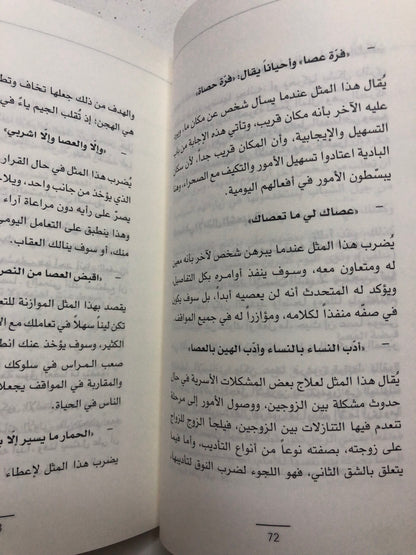 – «فرّة عصا» وأحياناً يقال: «فرّة حصاة»
يُقال هذا المثل عندما يسأل شخص عن مكان ما، فيرد
عليه الآخر بأنه مكان قريب، وتأتي هذه الإجابة من باب
التسهيل والإيجابية، وأن المكان قريب جداً، لأن سكان
البادية اعتادوا تسهيل الأمور والتكيف مع الصحراء، وهذا
يبسّطون الأمور في أفعالهم اليومية.
– «عصاك لي ما تعصاك»
يُضرب هذا المثل عندما يبرهن شخص لآخر بأنه معين
له ومتعاون معه، وسوف ينفذ أوامره بكل التفاصيل
ويؤكد له المتحدث أنه لن يعصيه أبداً، بل سوف يكون
في صفّه منفذاً لكلامه، ومؤازراً له في جميع المواقف.
– «أدّب النساء بالنساء وأدّب الهين بالعصا»
يُقال هذا المثل لعلاج بعض المشكلات الأسرية في حال
حدوث مشكلة بين الزوجين، ووصول الأمور إلى مرحلة
تنعدم فيها التنازلات بين الزوجين، فيلجأ الزوج للزواج
على زوجته، بصفته نوعاً من أنواع التأديب، وأما فيما
يتعلق بالشق الثاني، فهو اللجوء لضرب النوق لتأديبها،
72
والهدف من ذلك جعلها تخاف
هي الهجن؛ إذ تُقلب الجيم ياءً في
– «وإلّا والعصا وإلّا اشربي»
يُضرب هذا المثل في حال القرار
الذي يؤخذ من جانب واحد،
يصرّ على رأيه دون مراعاة آراء
وهذا ينطبق على التعامل اليومي
منك، أو سوف ينالك العقاب.
– «اقبض العصا من النصر
يقصد بهذا المثل الموازنة
تكن ليناً سهلاً في تعاملك مع
الكثير، وسوف يؤخذ عنك
صعب المراس في سلوكك
والمقاربة في المواقف يجعلا
الناس في الحياة.
– «الحمار ما يسير إلا
يضرب هذا المثل لإعطاء